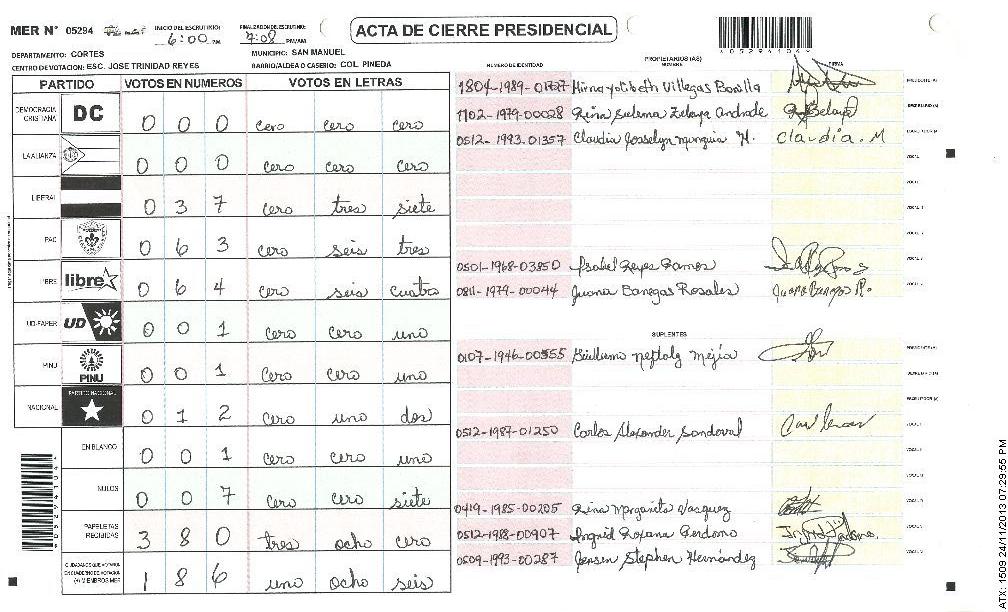 MER N° 05294 INICIO DEL ESCRUTINIO: 6:00 PM FINALIZACION DE ESCRUTINIO: 7:08 PM/AM ACTA DE CIERRE PRESIDENCIAL
DEPARTAMENTO: CORTES MUNICIPIO: SAN MANUEL
CENTRO DE VOTACION: ESC. JOSE TRINIDAD REYES BARRIO/ALDEA O CASERIO: COL. PINEDA
PARTIDO VOTOS EN NUMEROS VOTOS EN LETRAS
DEMOCRACIA CRISTIANA DC 0 0 0 cero cero cero
LA ALIANZA 0 0 0 cero cero cero
LIBERAL 0 3 7 cero tres siete
PAC 0 6 3 cero seis tres
LIBRE libre 0 6 4 cero seis cuatro
UD-FAPER UD 0 0 1 cero cero uno
PINU PINU 0 0 1 cero cero uno
NACIONAL PARTIDO NACIONAL 0 1 2 cero uno dos
EN BLANCO 0 0 1 cero cero uno
NULOS 0 0 7 cero cero siete
PAPELETAS RECIBIDAS 3 8 0 tres ocho cero
CIUDADANOS QUE VOTARON EN CUADERNO DE VOTACION (+) MIEMBROS MER 1 8 6 uno ocho seis
PROPIETARIOS (AS)
NUMERO DE IDENTIDAD NOMBRE FIRMA
1804-1989-01727 Mirna yolibeth Villegas Bonilla
1702-1979-00028 Rina Sulema Zelaya Andrade
0512-1993-01357 Claudia Josselyn munguia M. claudia.M
0501-1968-03850 Isabel Reyes Ramos
0811-1979-00044 Juana Banegas Rosales
SUPLENTES
0107-1946-00555 Guillermo neftaly mejia
0512-1987-01250 Carlos Alexander Sandoval
0419-1985-00205 Rina Margarita Vasquez
0512-1988-00907 Ingrid Roxana Perdomo
0509-1993-00287 Jensen Stephen Hernández
ATX: 1509 24/11/2013 07:29:55 PM